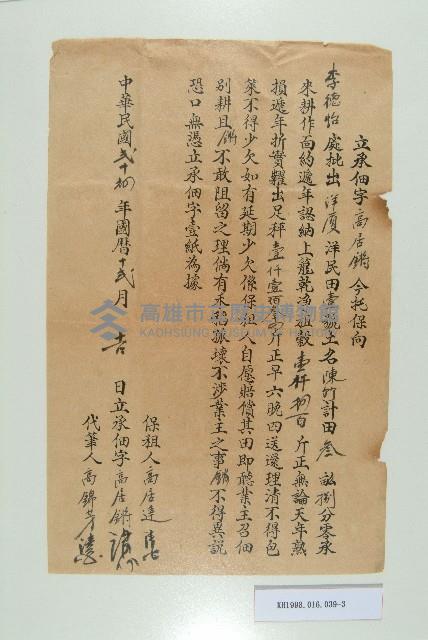 立承佃字高居鏘今托保向
李德怡處批出洋厦洋民田壹號土名陳竹計田叁畝捌分零承
來耕作面約遞年認納上龍乾净租穀壹仟初百斤正無論天年熟
損遞年折實糶出足秤壹仟壹佰斤正早六晚四送還理清不得包
萊不得少欠如有延期少欠係保租人自愿賠償其田即聽業主召佃
別耕且鏘不敢阻留之理倘有禾坵掀壞不涉業主之事鏘不得異說
恐口無憑立承佃字壹紙為據
中華民國弍十初年國曆十弍月 日立承佃字高居鏘
保租人高居達
代筆人高錦芳
高雄市立歷史博物館
KAOHSIUNG MUSEUM OF HISTORY
KH1998.016.039-3